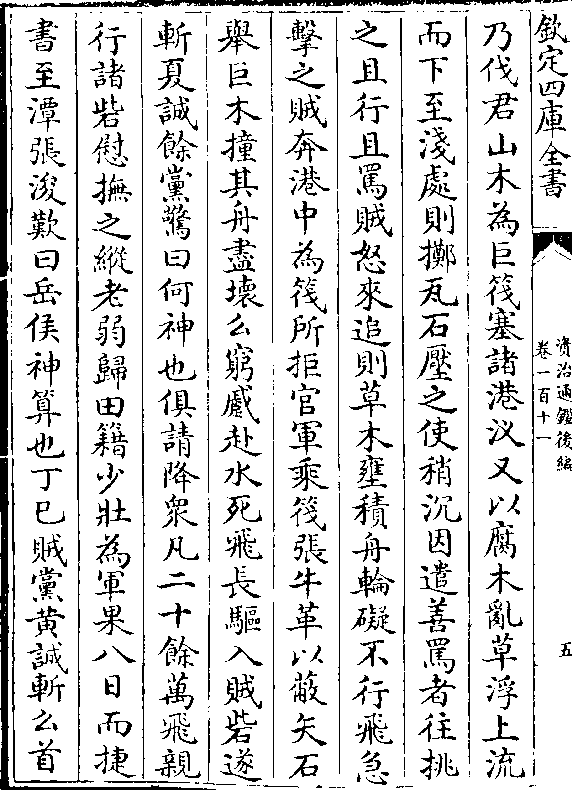 欽定四庫全書
資治通鑑後編
卷一百十一
五
乃伐君山木為巨筏塞諸港汊又以腐木亂草浮上流
而下至淺處則擲瓦石壓之使稍沉因遣善罵者往挑
之且行且罵賊怒來追則草木壅積舟輪礙不行飛急
擊之賊奔港中為筏所拒官軍乘筏張牛革以蔽矢石
舉巨木撞其舟盡壞么窮蹙赴水死飛長驅入賊砦遂
斬夏誠餘黨驚曰何神也俱請降衆凡二十餘萬飛親
行諸砦慰撫之縱老弱歸田籍少壯為軍果八日而捷
書至潭張浚歎曰岳侯神算也丁巳賊黨黄誠斬么首